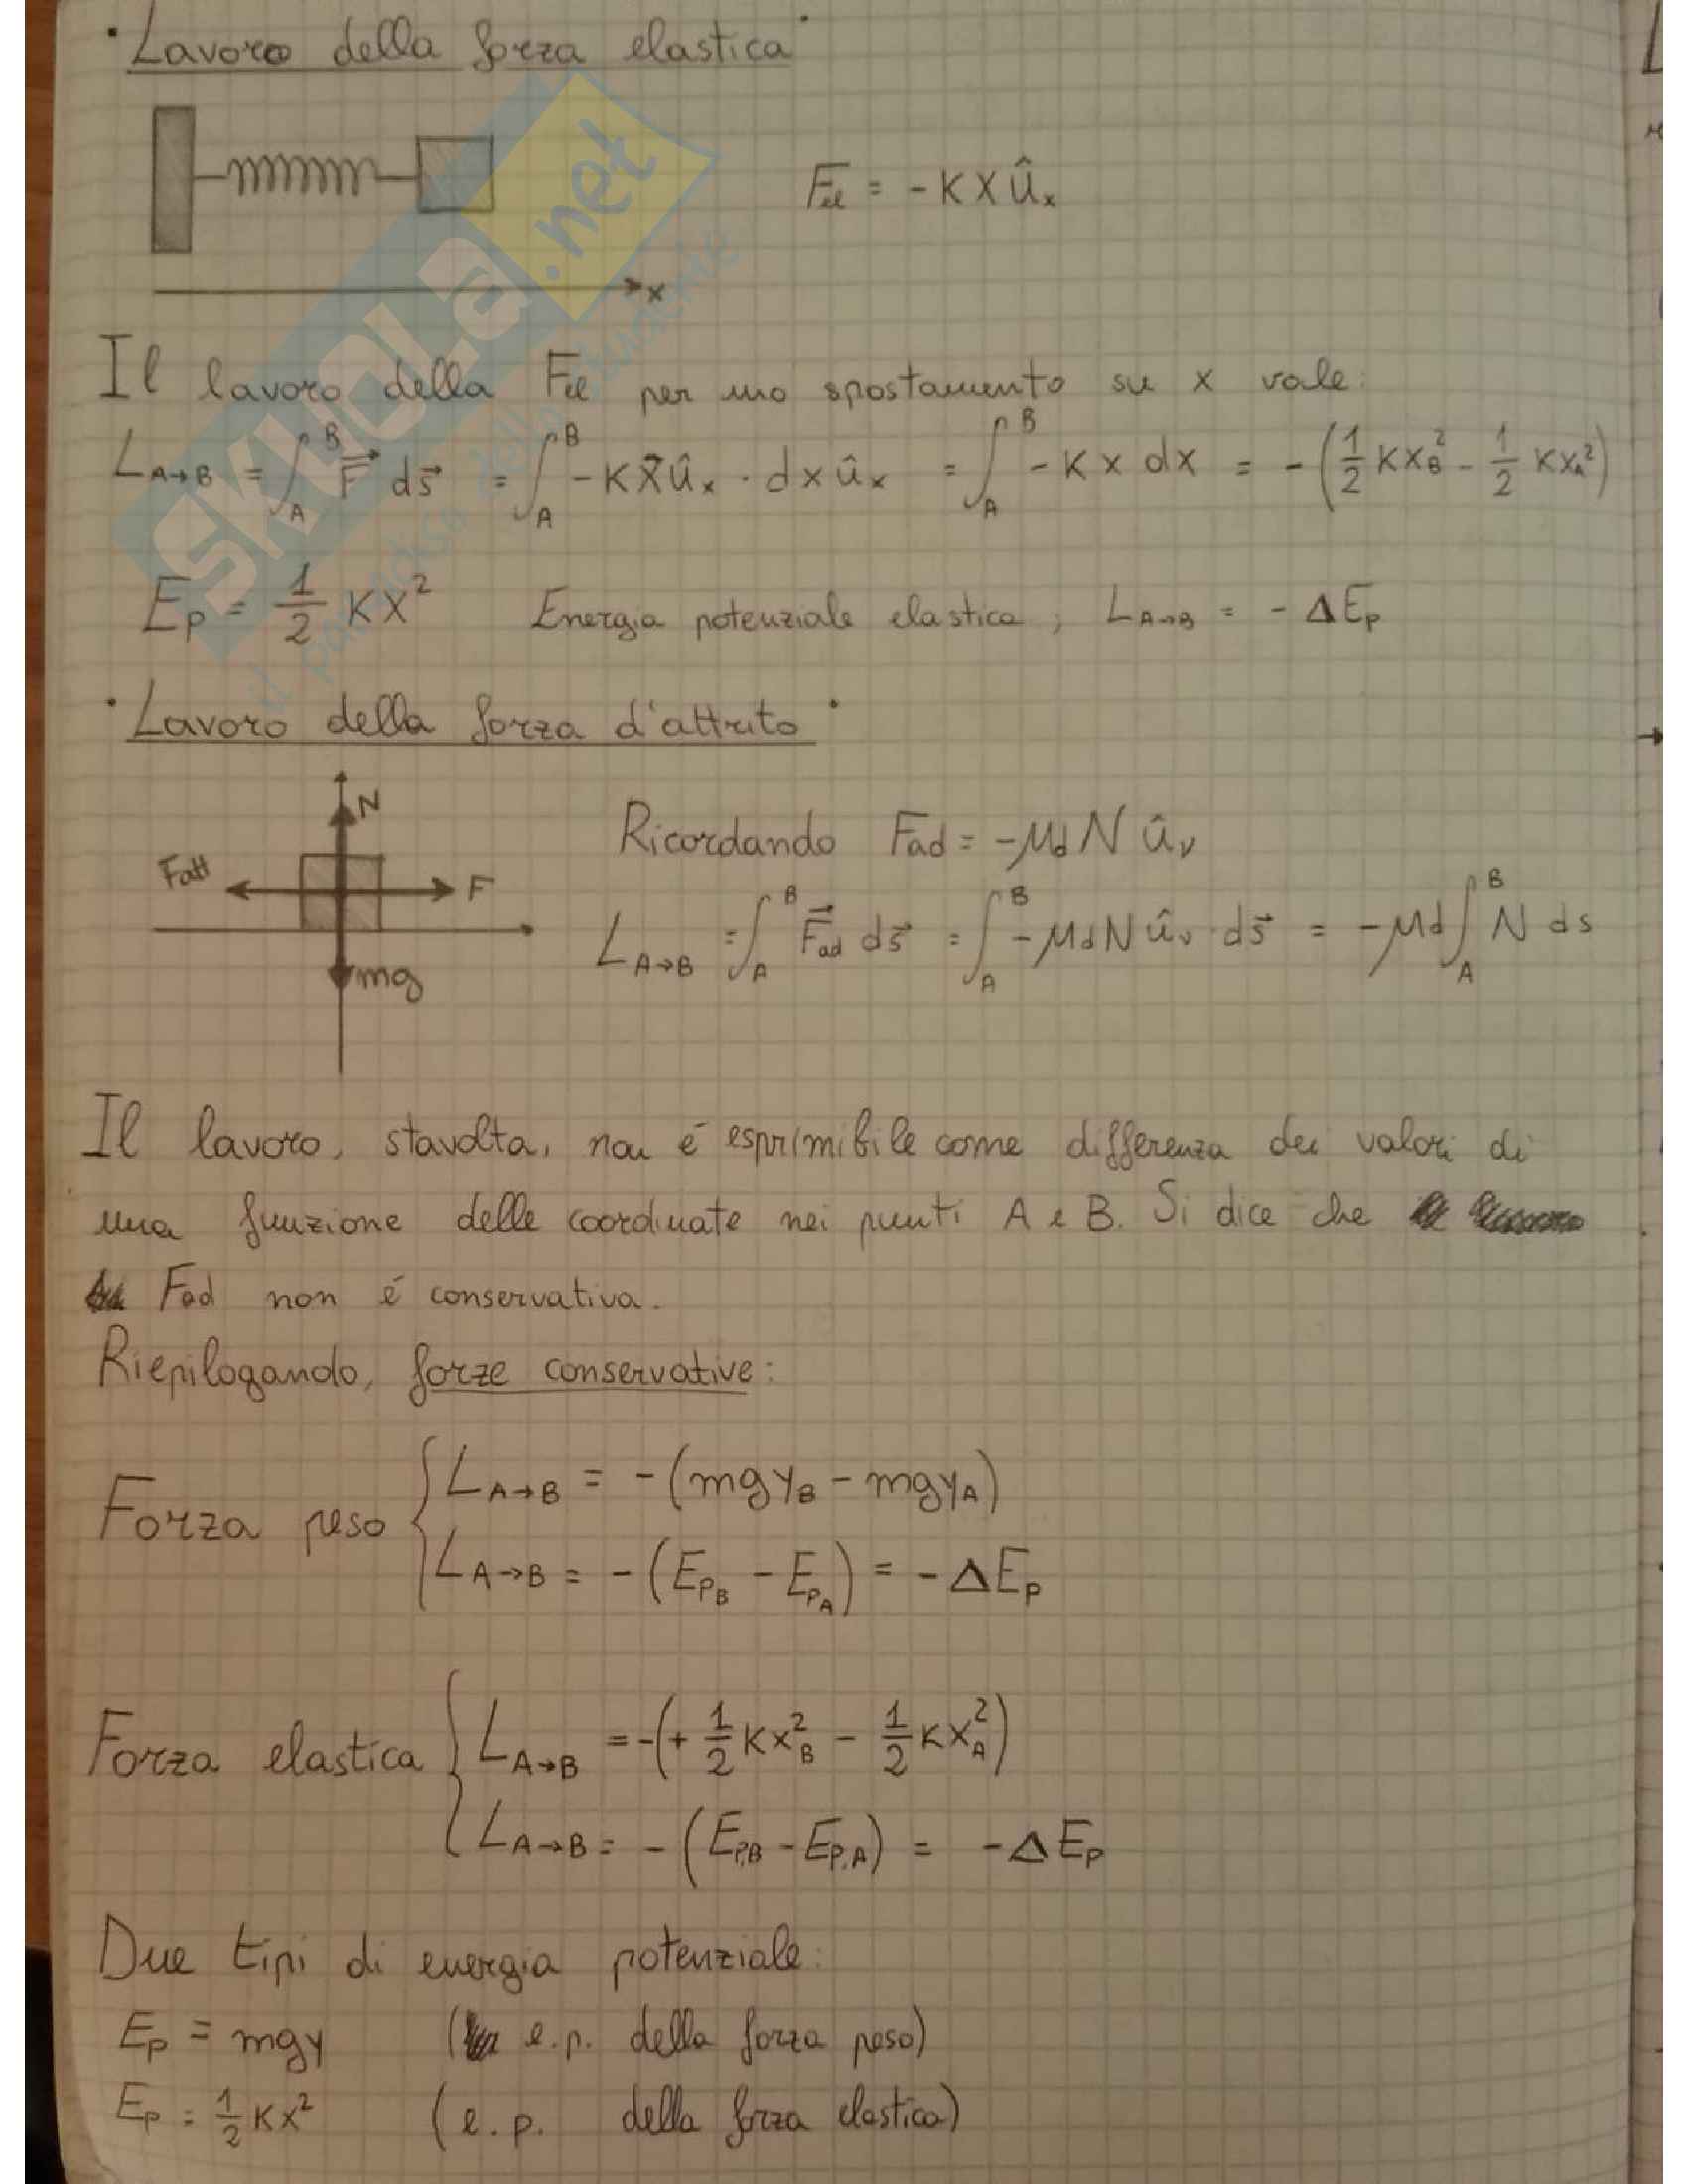 • Lavoro della forza elastica •
Fel = - K X û_x
x
Il lavoro della Fel per uno spostamento su x vale:
L_A→B = ∫_A^B F⃗ ds⃗ = ∫_A^B - K X⃗ û_x · dx û_x = ∫_A^B - K x dx = - (1/2 K x_B² - 1/2 K x_A²)
E_P = 1/2 K X² Energia potenziale elastica ; L_A→B = - Δ E_P
• Lavoro della forza d'attrito •
N
Fatt
F
mg
Ricordando Fad = - μd N û_v
L_A→B = ∫_A^B F⃗ad ds⃗ = ∫_A^B - μd N û_v · ds⃗ = - μd ∫_A^B N ds
Il lavoro, stavolta, non é esprimibile come differenza dei valori di
una funzione delle coordinate nei punti A e B. Si dice che
Fad non é conservativa.
Riepilogando, forze conservative:
Forza peso { L_A→B = - (mgy_B - mgy_A)
L_A→B = - (E_P_B - E_P_A) = - Δ E_P
Forza elastica { L_A→B = - (+ 1/2 K x_B² - 1/2 K x_A²)
L_A→B = - (E_P,B - E_P,A) = - Δ E_P
Due tipi di energia potenziale:
E_P = mgy ( e.p. della forza peso)
E_P = 1/2 K x² (e.p. della forza elastica)
SKUOLa.net
il paradiso dello studente